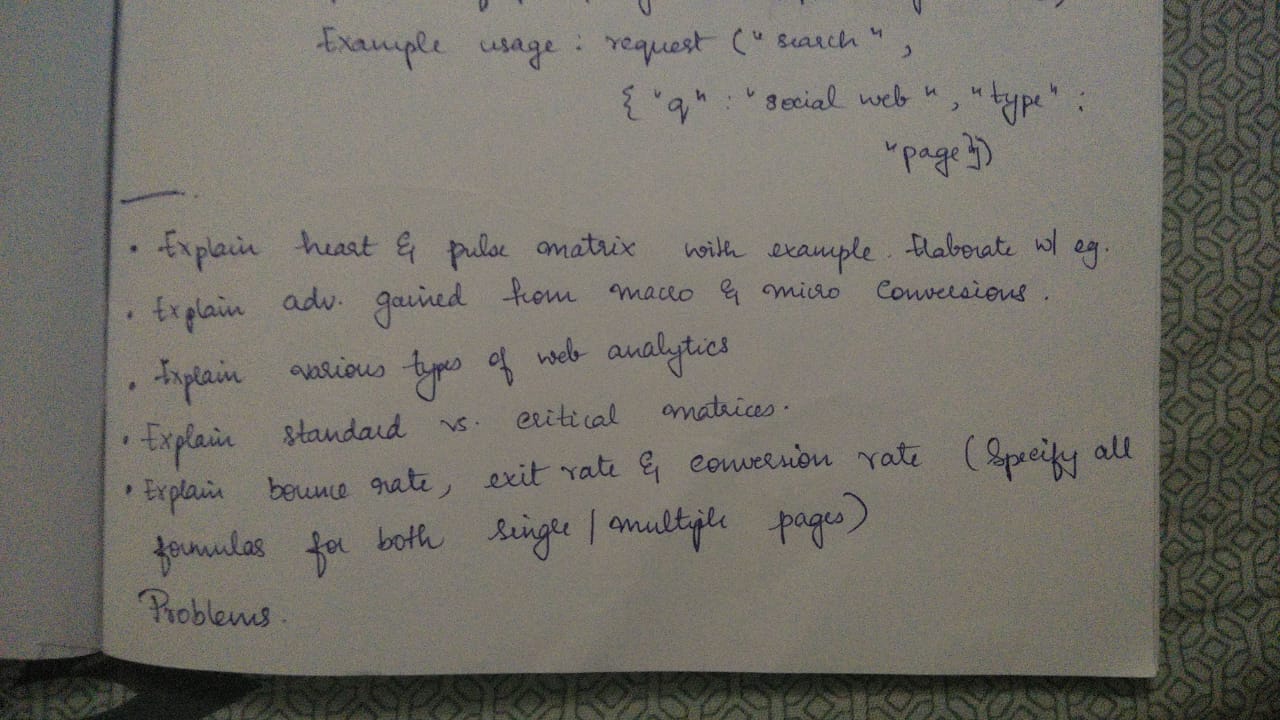 Example usage : request ("search",
{ "q" : "social web", "type" :
"page"})
• Explain heart & pulse matrix with example. Elaborate w/ eg.
• Explain adv. gained from macro & micro conversions.
• Explain various types of web analytics
• Explain standard vs. critical matrices.
• Explain bounce rate, exit rate & conversion rate (Specify all
formulas for both single / multiple pages)
Problems.